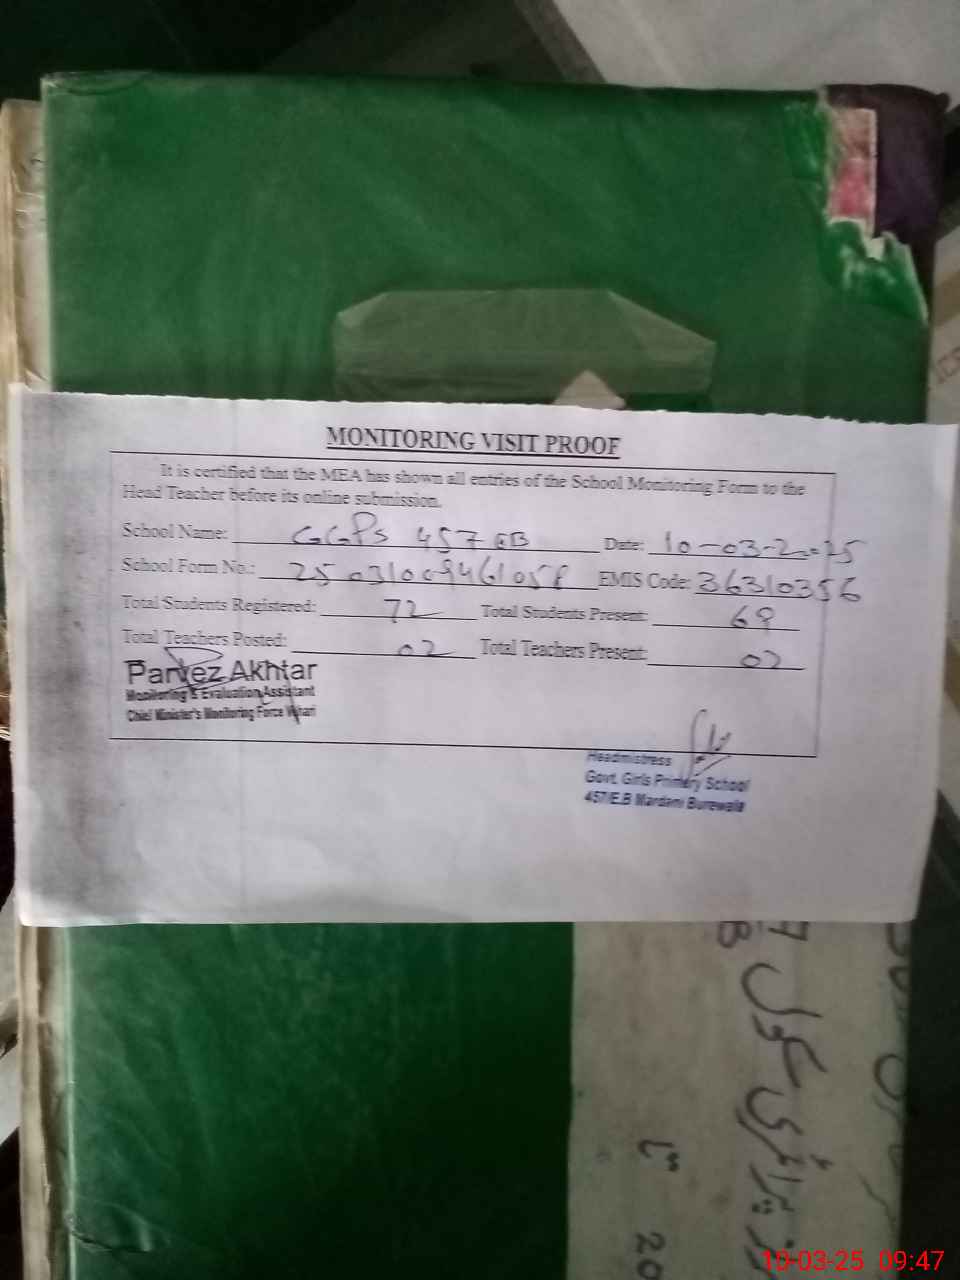 MONITORING VISIT PROOF
It is certified that the MEA has shown all entries of the School Monitoring Form to the
Head Teacher before its online submission.
School Name: GGPS 457 EB Date: 10-03-2025
School Form No.: 25031009461058 EMIS Code: 36310356
Total Students Registered: 72 Total Students Present: 68
Total Teachers Posted: 02 Total Teachers Present: 02
Parvez Akhtar
Monitoring & Evaluation Assistant
Chief Minister's Monitoring Force Vehari
Headmistress
Govt. Girls Primary School
457/E.B Mardani Burewala
پرائمری سکول
تا 20
10-03-25 09:47